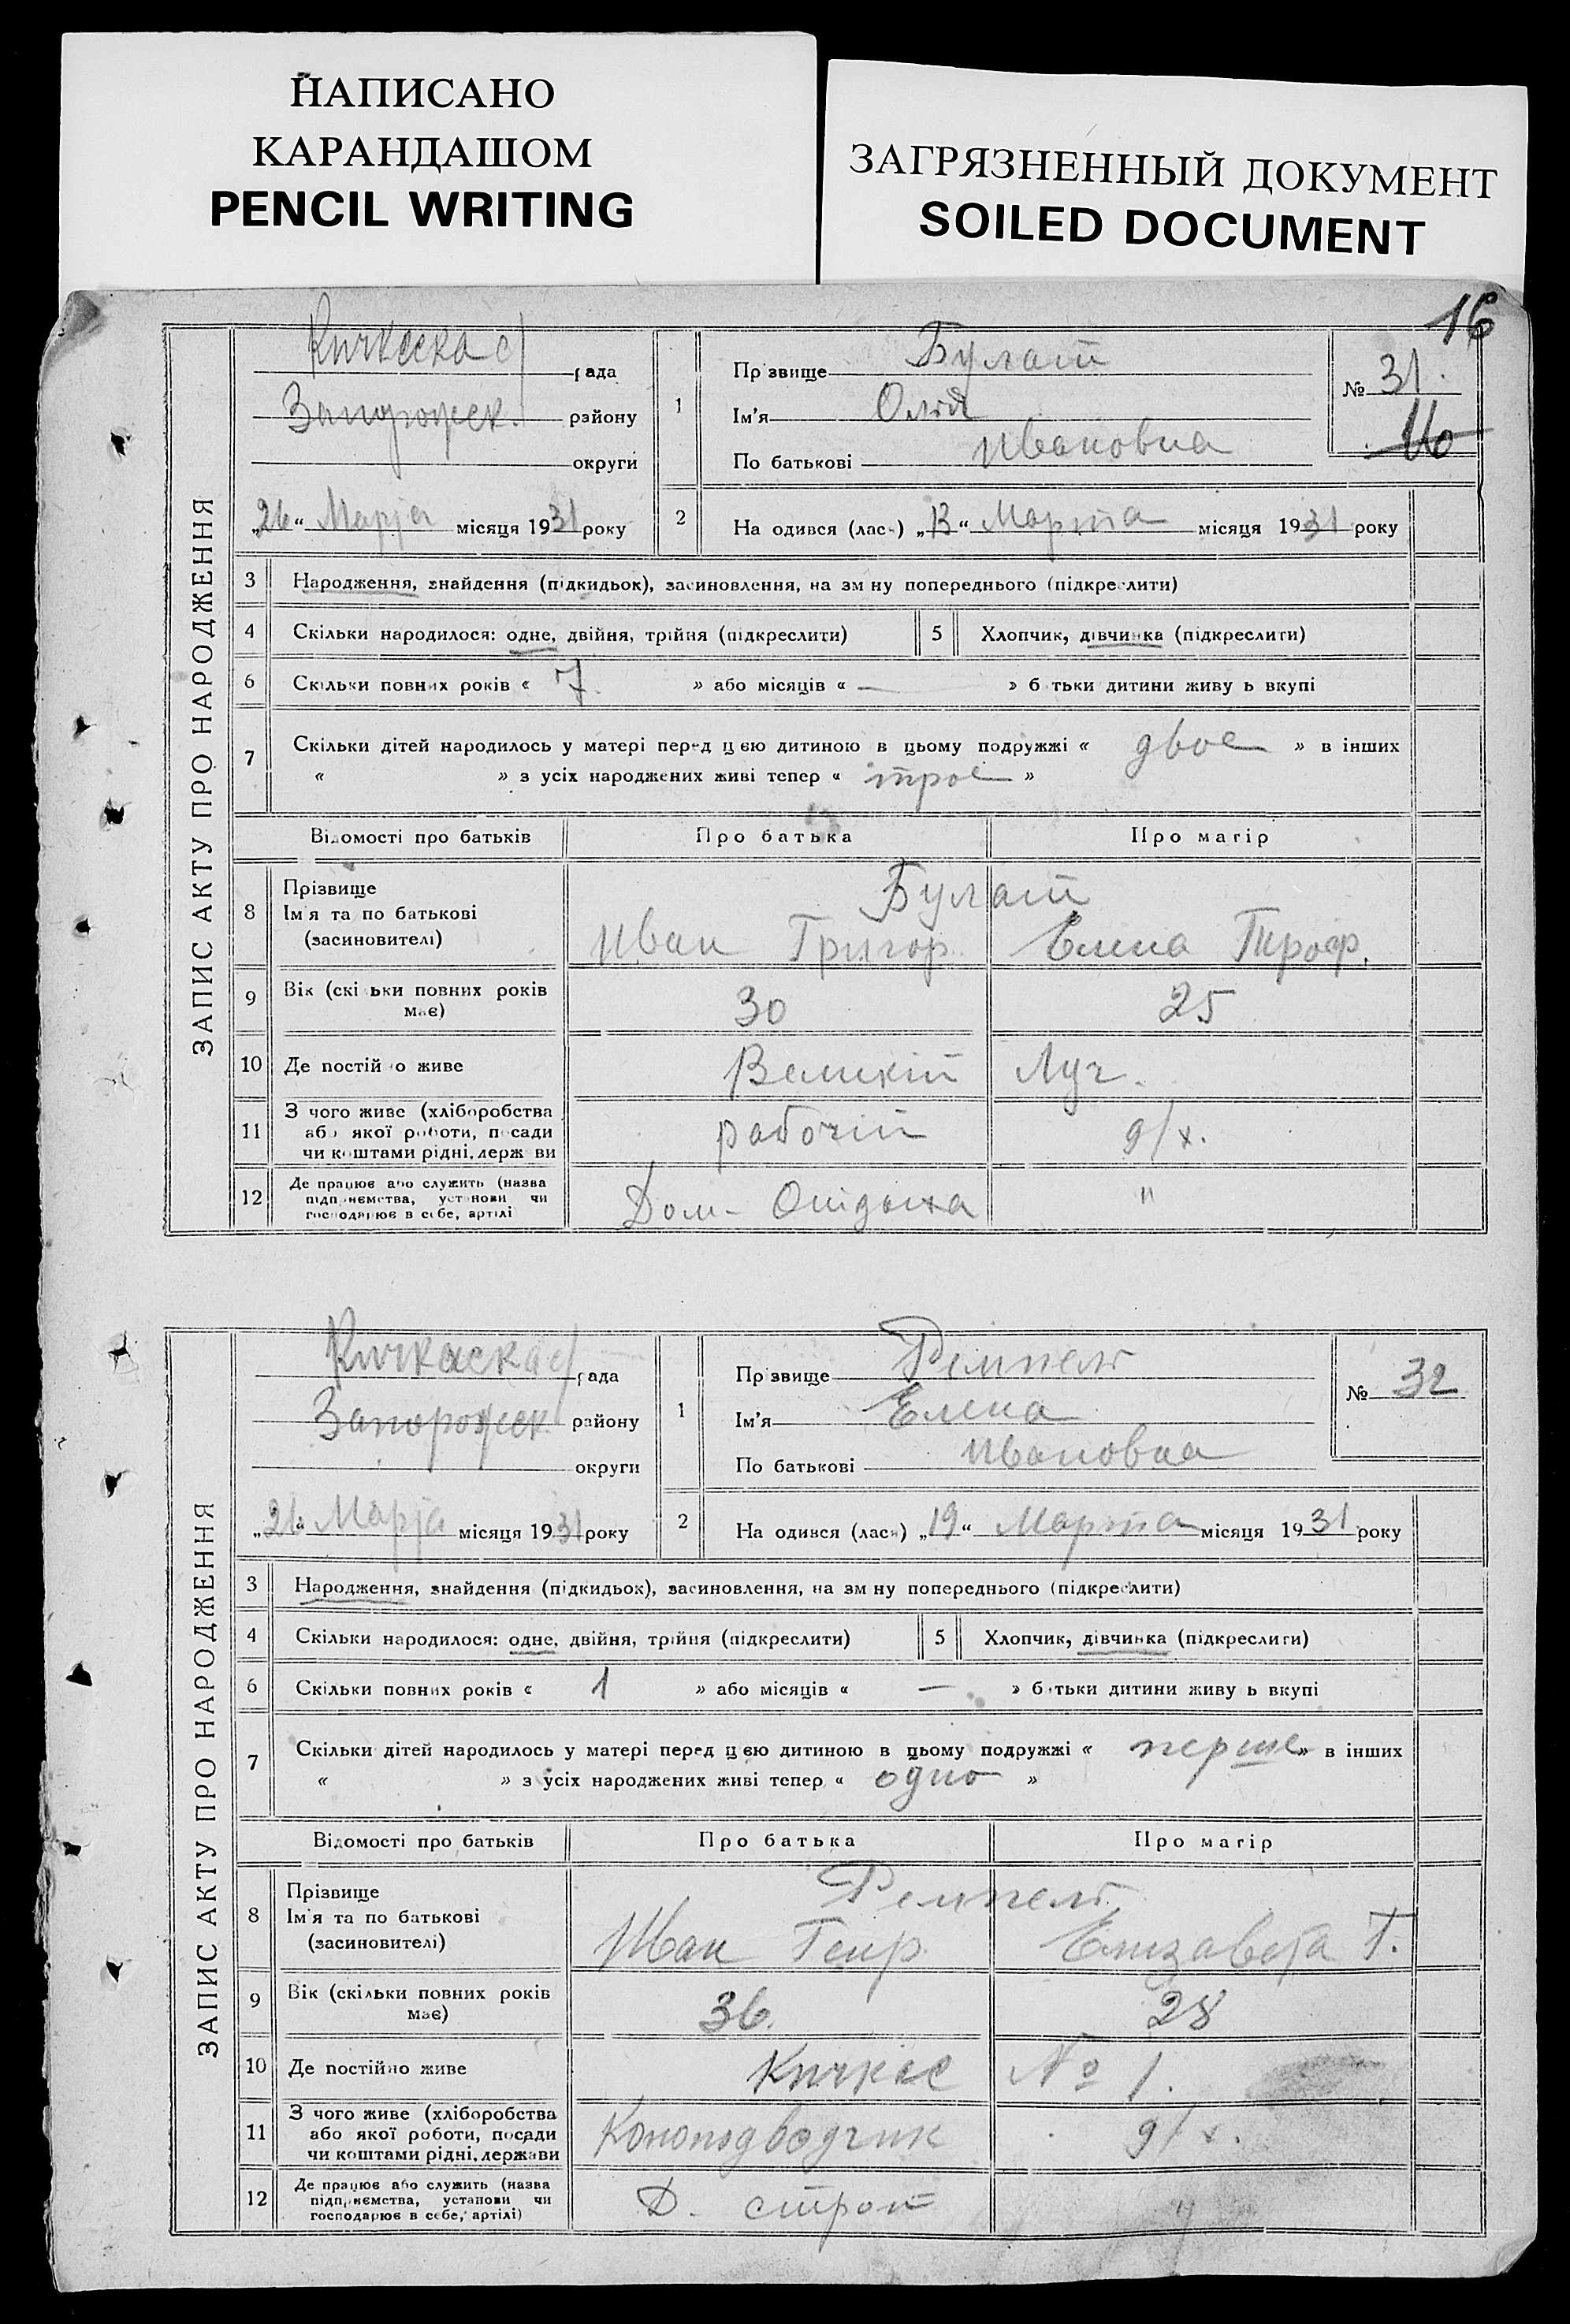 НАПИСАНО
КАРАНДАШОМ
PENCIL WRITING
ЗАГРЯЗНЕННЫЙ ДОКУМЕНТ
SOILED DOCUMENT
16
ЗАПИС АКТУ ПРО НАРОДЖЕННЯ
Кичкаска с/рада
Запорожск. району
округи
„26“ Марта місяця 1931 року
1
Прізвище Булат
Ім'я Олія
По батькові Ивановна
№ 31.
16
2 На одився (лась) „13“ Марта місяця 1931 року
3 Народження, знайдення (підкидьок), засиновлення, на зм ну попереднього (підкреслити)
4 Скільки народилося: одне, двійня, трійня (підкреслити) 5 Хлопчик, дівчинка (підкреслити)
6 Скільки повних років « 7. » або місяців « — » б тьки дитини живу ь вкупі
7 Скільки дітей народилось у матері перед цією дитиною в цьому подружжі « двое » в інших
« » з усіх народжених живі тепер « трое »
Відомості про батьків Про батька Про матір
8 Прізвище Булат
Ім'я та по батькові
(засиновителі) Иван Григор. Елена Троф.
9 Вік (скі ьки повних років
має) 30 25
10 Де постій о живе Великій Луг.
11 З чого живе (хліборобства
або якої роботи, посади
чи коштами рідні, держ ви рабочій д/х.
12 Де працює або служить (назва
підприємства, установи чи
господарює в себе, артілі Дом- "
ЗАПИС АКТУ ПРО НАРОДЖЕННЯ
Кичкаска с/рада
Запорожск району
округи
„26“ Марта місяця 1931 року
1
Прізвище Ремпель
Ім'я Елена
По батькові Ивановна
№ 32
2 На одився (лась) „19“ Марта місяця 1931 року
3 Народження, знайдення (підкидьок), засиновлення, на зм ну попереднього (підкреслити)
4 Скільки народилося: одне, двійня, трійня (підкреслити) 5 Хлопчик, дівчинка (підкреслити)
6 Скільки повних років « 1 » або місяців « — » батьки дитини живу ь вкупі
7 Скільки дітей народилось у матері перед цією дитиною в цьому подружжі « перше » в інших
« » з усіх народжених живі тепер « одно »
Відомості про батьків Про батька Про матір
8 Прізвище Ремпель
Ім'я та по батькові
(засиновителі) Иван Генр. Елизавета Г.
9 Вік (скільки повних років
має) 36. 28
10 Де постійно живе Кичкас № 1.
11 З чого живе (хліборобства
або якої роботи, посади
чи коштами рідні, держави Коноподводчик д/х.
12 Де працює або служить (назва
підприємства, установи чи
господарює в себе, артілі) Д. строй "